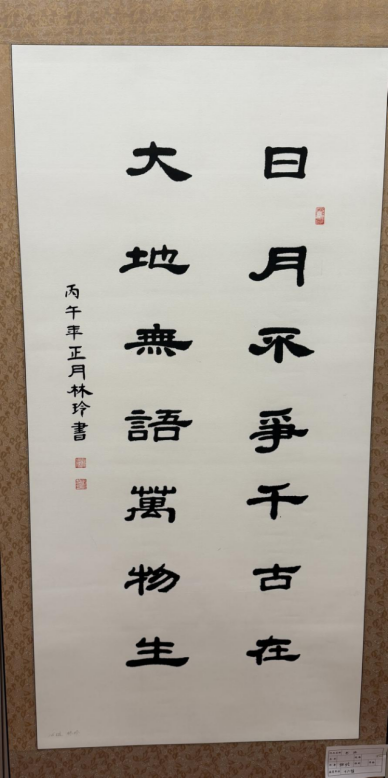 日月不爭千古在
大地無語萬物生
丙午年正月林玲書